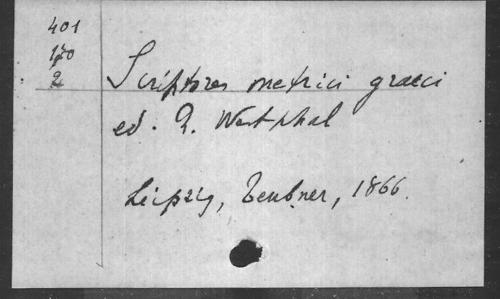 401
170
2
Scriptores metrici graeci
ed. R. Westphal
Leipzig, Teubner, 1866.